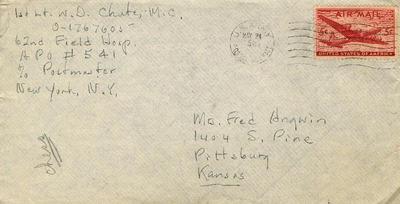 1st Lt. W. D. Chute, M.C.
O-1767605
62nd Field Hosp.
A P O # 541
c/o Postmaster
New York, N.Y.
AIR MAIL
UNITED STATES OF AMERICA
Fred Angwin
1404 S. Pine
Pittsburg
Kansas